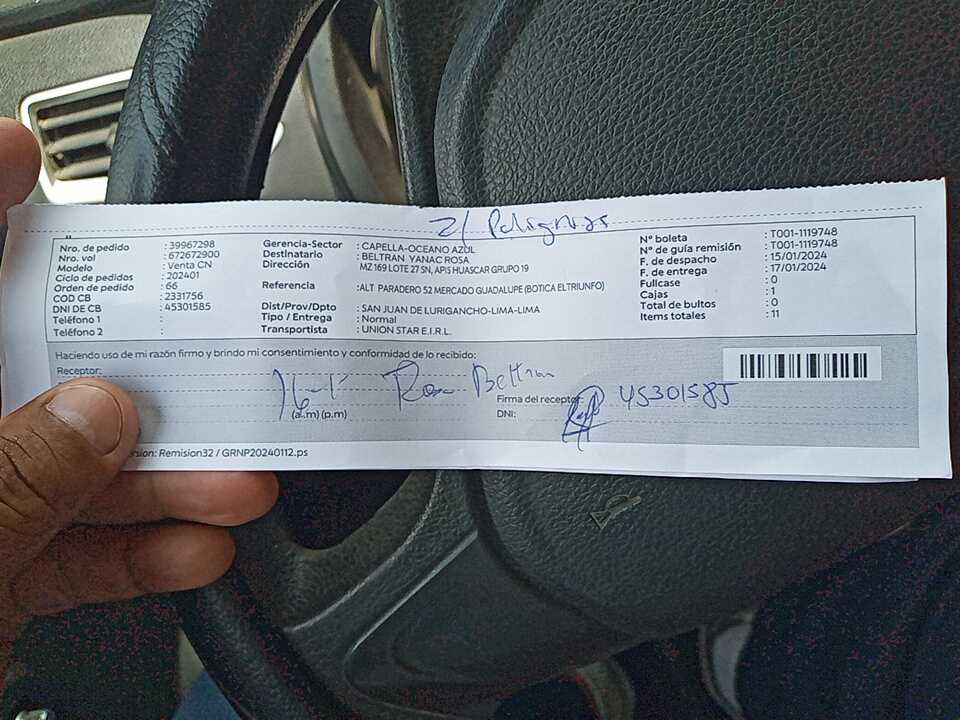 Z/ Peligrosa
Nro. de pedido : 39967298
Nro. vol : 672672900
Modelo : Venta CN
Ciclo de pedidos : 202401
Orden de pedido : 66
COD CB : 2331756
DNI DE CB : 45301585
Teléfono 1 :
Teléfono 2 :
Gerencia-Sector : CAPELLA-OCEANO AZUL
Destinatario : BELTRAN YANAC ROSA
Dirección MZ 169 LOTE 27 SN, APIS HUASCAR GRUPO 19
Referencia :ALT PARADERO 52 MERCADO GUADALUPE (BOTICA ELTRIUNFO)
Dist/Prov/Dpto : SAN JUAN DE LURIGANCHO-LIMA-LIMA
Tipo / Entrega : Normal
Transportista : UNION STAR E.I.R.L.
N° boleta : T001-1119748
N° de guía remisión : T001-1119748
F. de despacho : 15/01/2024
F. de entrega : 17/01/2024
Fullcase : 0
Cajas : 1
Total de bultos : 0
Items totales : 11
Haciendo uso de mi razón firmo y brindo mi consentimiento y conformidad de lo recibido:
Receptor:
Rosa Beltran
(a..m) (p.m)
Firma del receptor:
45301585
DNI:
Remision32 / GRNP20240112.ps